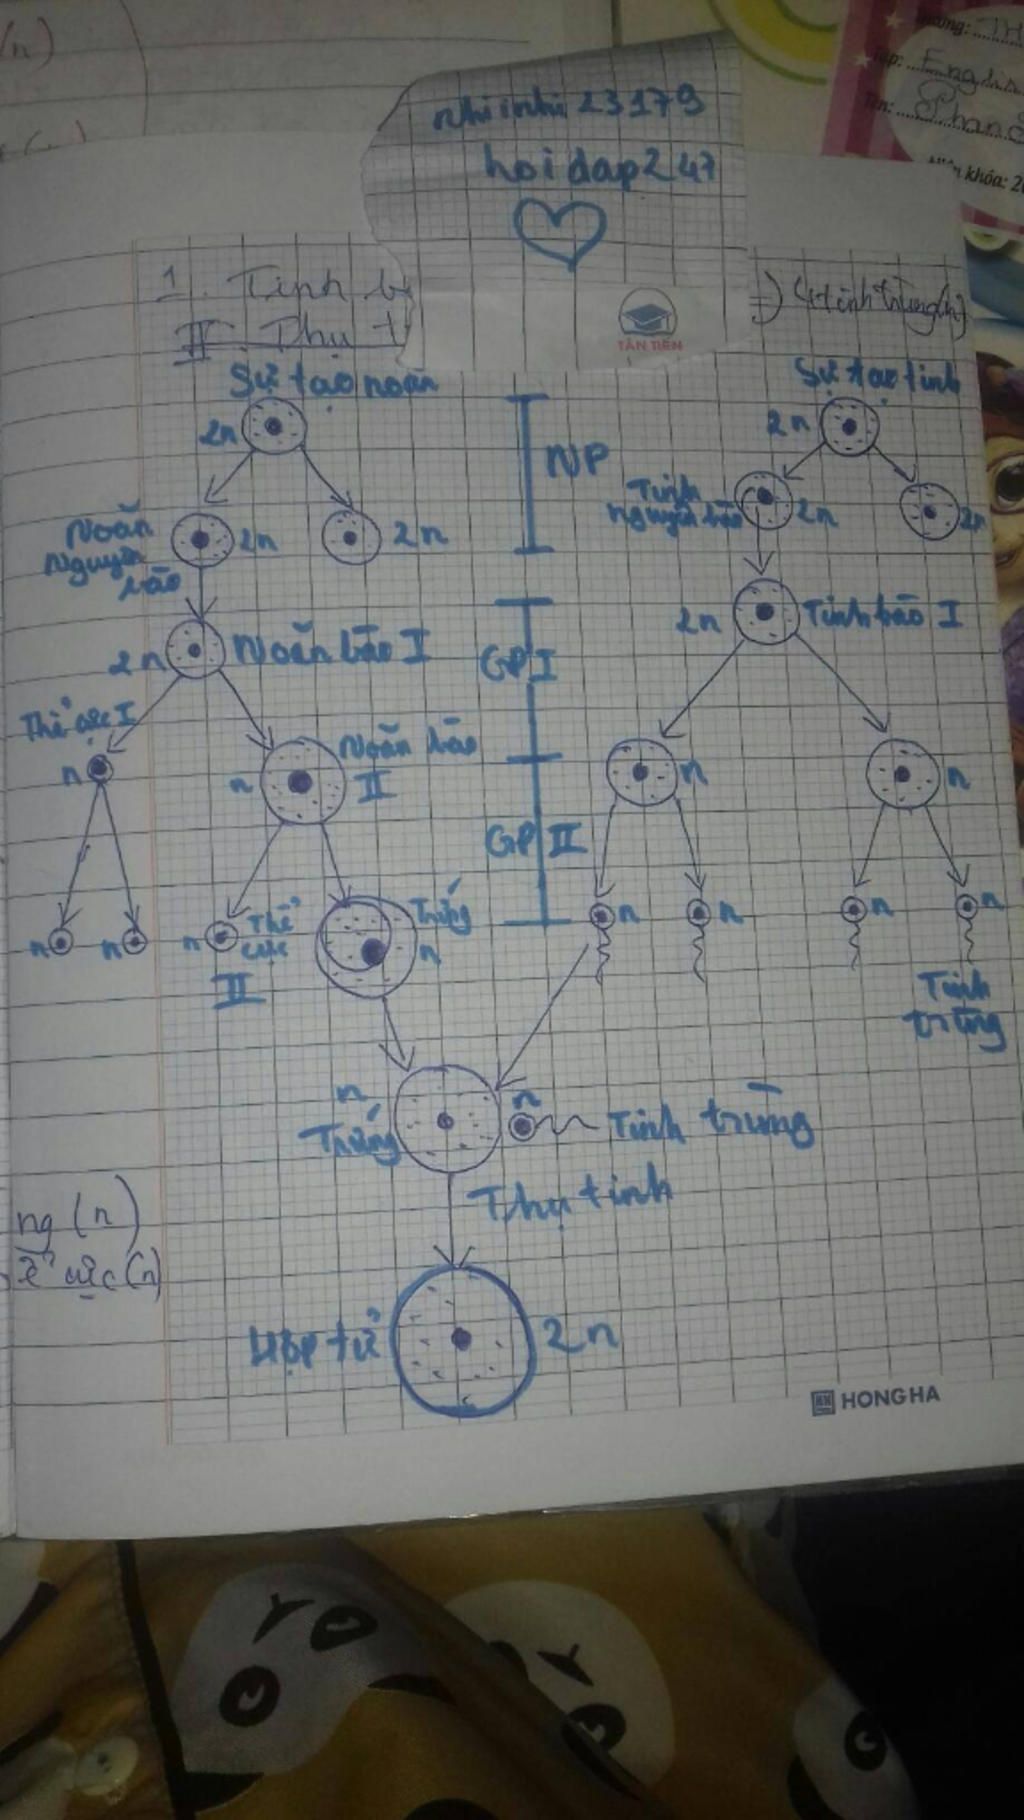 (n)
nhi nhi 23179
hoidap247
TÂN TIẾN
Trường: TH
Lớp: English
Tên: Phan
Niên khóa: 20
1. Tinh b
=) 4 tinh trùng(n)
II. Thụ t
Sự tạo noãn
Sự tạo tinh
2n
2n
NP
Noãn nguyên bào
2n
2n
Tinh nguyên bào
2n
2n
2n
Noãn bào I
GP I
2n
Tinh bào I
Thể cực I
n
n
Noãn bào II
n
n
GP II
n
n
n
Thể cực II
Trứng
n
n
n
n
n
Tinh trùng
n
Trứng
n
Tinh trùng
Thụ tinh
ng (n)
ể cực (n)
Hợp tử
2n
HONG HA